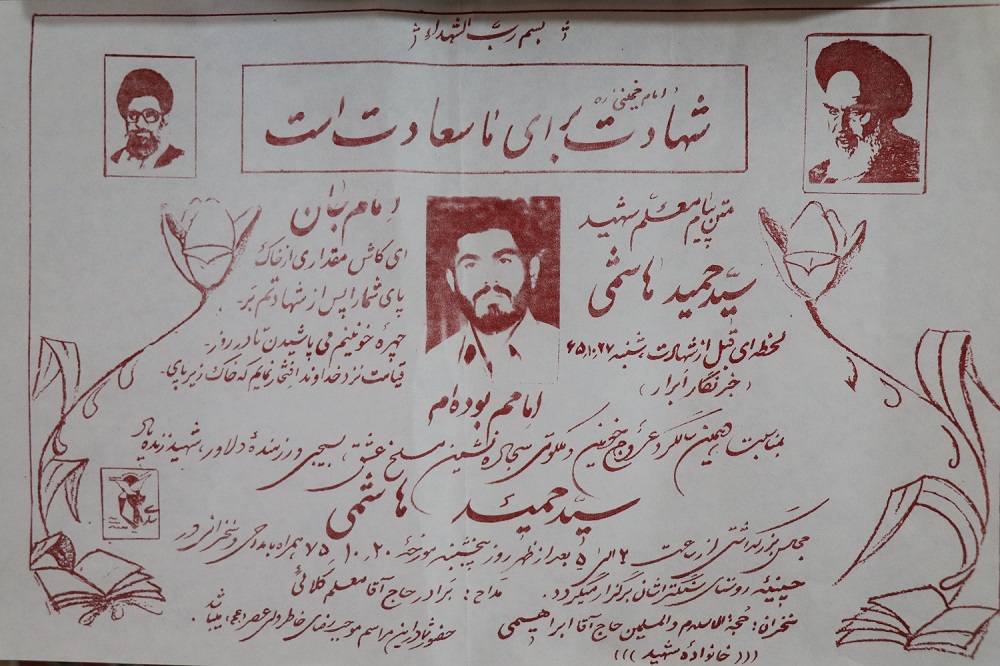 بسم رب الشهداء
امام خمینی ره
شهادت برای ما سعادت است
متن پیام معلم شهید
سید حمید هاشمی
لحظه‌ای قبل از شهادت شنبه ۶۵،۱۰،۲۷
( خبرنگار ابرار )
امام جان
ای کاش مقداری از خاک
پای شما را پس از شهادتم بر-
چهره خونینم می پاشیدن تا در روز-
قیامت نزد خداوند افتخار نمایم که خاک زیر پای-
امامم بوده‌ام
بمناسبت دهمین سالگرد عروج خونین و ملکوتی سجاده نشین مسلخ عشق، بسیجی و رزمندهٔ دلاور، شهید زنده یاد
سید حمید هاشمی
مجلس بزرگداشتی از ساعت ۲ الی ۵ بعد از ظهر روز پنجشنبه مورخهٔ ۷۵،۱۰،۲۰ همراه با مداحی و سخنرانی در
حسینیه روستای برگزار میگردد. مداح: برادر حاج آقا معلم کلائی
سخنران: حجة الاسلام والمسلمین حاج آقا ابراهیمی حضور شما در این مراسم موجب رضای خاطر ولی عصر (عج) میباشد.
((( خانوادهٔ شهید )))